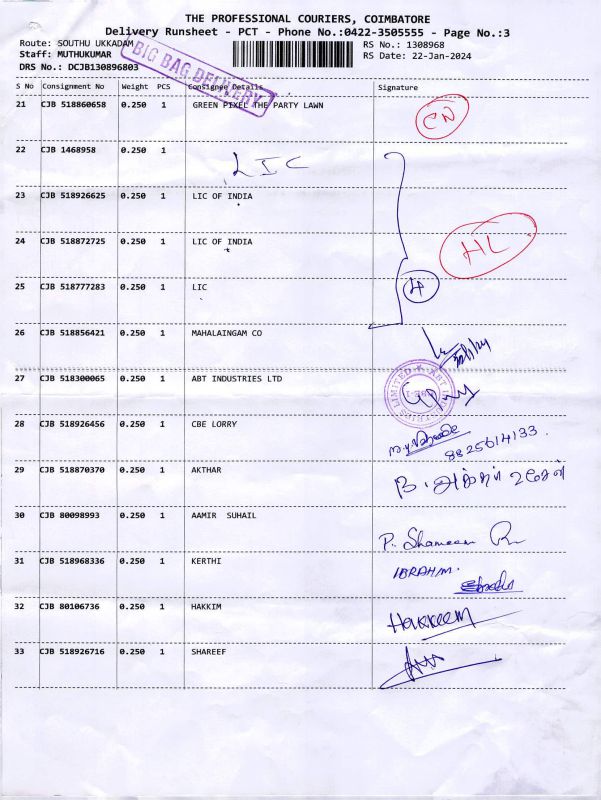 THE PROFESSIONAL COURIERS, COIMBATORE
Delivery Runsheet - PCT - Phone No.:0422-3505555 - Page No.:3
Route: SOUTHU UKKADAM
RS No.: 1308968
Staff: MUTHUKUMAR
RS Date: 22-Jan-2024
DRS No.: DCJB130896803
BIG BAG DELIVERY
S No Consignment No Weight PCS Consignee Details Signature
21 CJB 518860658 0.250 1 GREEN PIXEL THE PARTY LAWN
CN
22 CJB 1468958 0.250 1 LIC
23 CJB 518926625 0.250 1 LIC OF INDIA
24 CJB 518872725 0.250 1 LIC OF INDIA
HL
25 CJB 518777283 0.250 1 LIC
4
26 CJB 518856421 0.250 1 MAHALAINGAM CO
27 CJB 518300065 0.250 1 ABT INDUSTRIES LTD
28 CJB 518926456 0.250 1 CBE LORRY
8825614133
29 CJB 518870370 0.250 1 AKTHAR
30 CJB 80098993 0.250 1 AAMIR SUHAIL
P. Shameem
31 CJB 518968336 0.250 1 KERTHI
IBRAHM.
32 CJB 80106736 0.250 1 HAKKIM
Hakkeem
33 CJB 518926716 0.250 1 SHAREEF